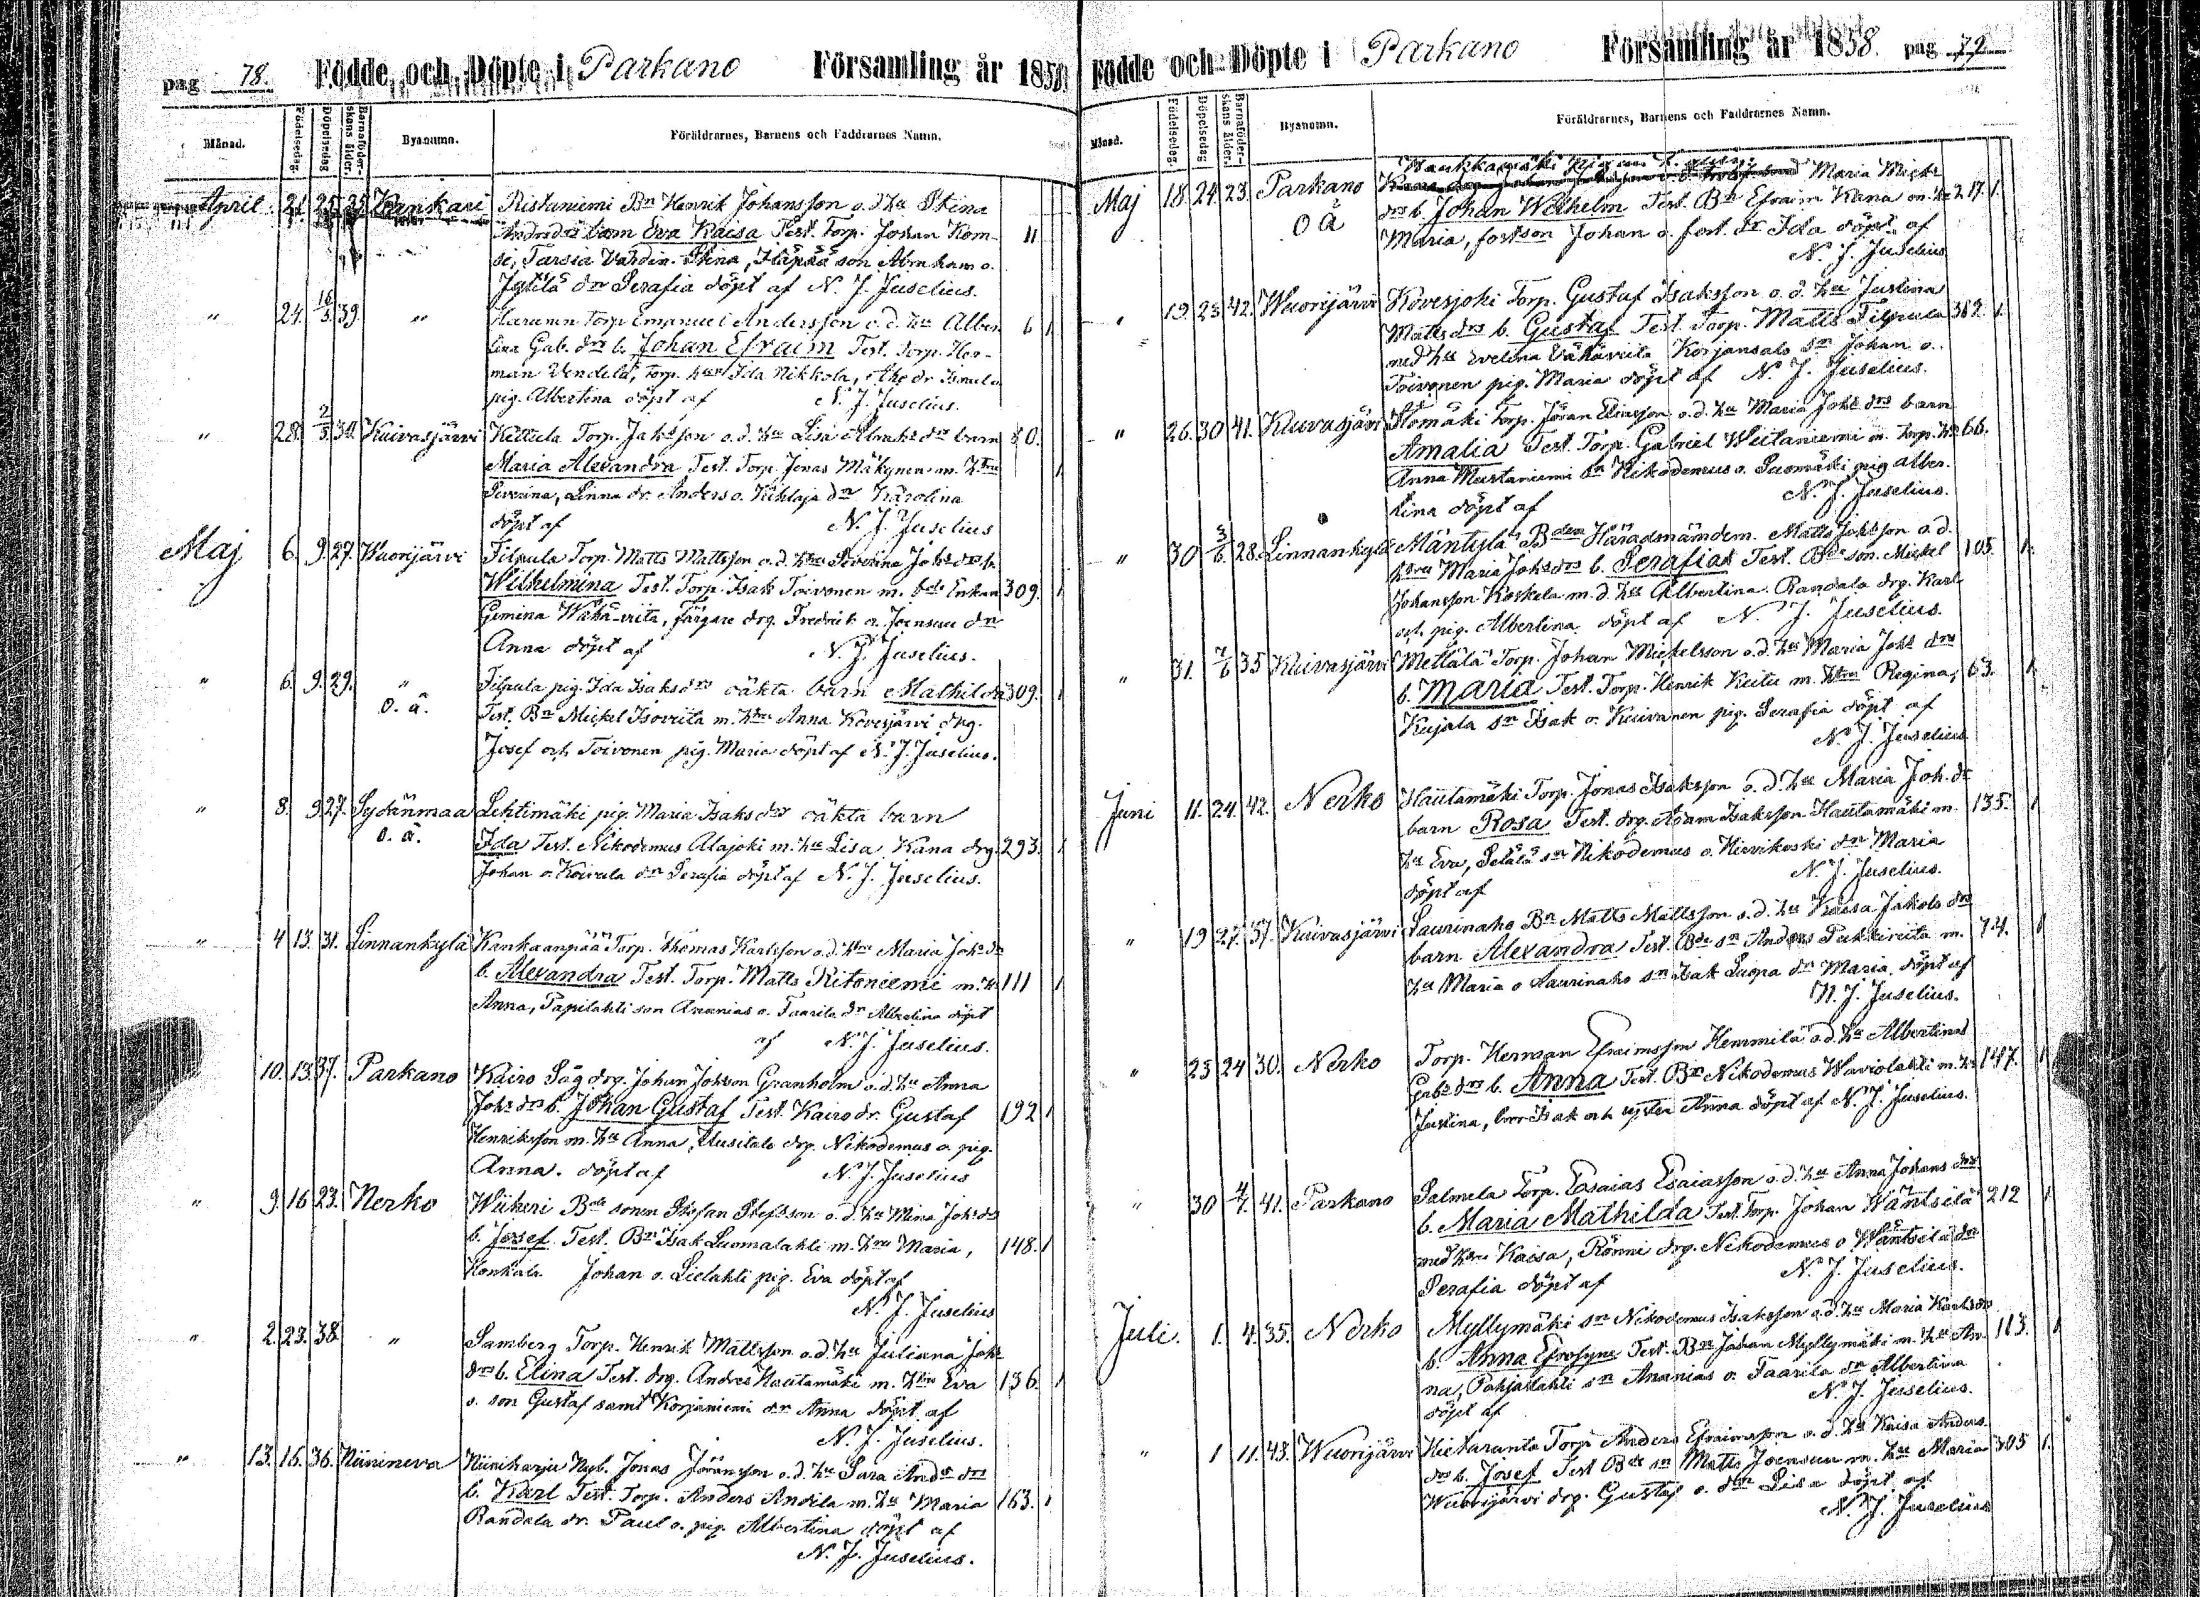 pag 78. Födde och Döpte i Parkano Församling år 1858
Månad. Födelsedag Döpelsedag Barnaföderskans ålder. Byanamn. Föräldrarnes, Barnens och Faddrarnes Namn.
April 21. 25. 25. Kankari Ristaniemi Bn Henrik Johansson o. d. hu Stina
Andrs dr barn Eva Kaisa Test. Torp. Johan Kom- 11
se, Tarsia Värdin. Stina, Häpää son Abraham o.
dr Serafia döpt af N. J. Juselius.
" 24. 16/5. 39 " Torp Emanuel Andersson o. d. hu Alber 6 1
tina Gab. drs b. Johan Efraim Test. Torp. Her-
man Vendelä, Torp. hun Ida Nikkola,
pig. Albertina döpt af N. J. Juselius.
" 28. 2/5. 30 Kuivasjärvi Kettula Torp. Jakobsson o. d. hu Lisa Abrah. drs barn 80.
Maria Alexandra Test. Torp. Jonas Mäkynen m. hru 1
Severina, Linna dr. Anders o. dr Karolina
döpt af N. J. Juselius
Maj 6. 9. 27. Wuorijärvi Filpula Torp. Matts Mattsson o. d. hru Severina Johs drs b.
Wilhelmina Test. Torp. Isak Toivonen m. bde Enkan 309. 1
Gemina Wähä-viita, Färgare drg. Fredrik o. Joensuu dr
Anna döpt af N. J. Juselius.
" 6. 9. 29. " Filpula pig. Ida Isaksdrs oäkta barn Mathilda 309. 1
o. ä. Test. Bn Mickel Isoviita m. hru Anna Kovesjärvi drg.
Josef och Toivonen pig. Maria döpt af N. J. Juselius.
" 8. 9. 27. Sydänmaa Lehtimäki pig. Maria Isaks drs oäkta barn
o. ä. Ida Test. Nikodemus Alajoki m. hu Lisa Kana drg. 293. 1
Johan o. Koivula dr Serafia döpt af N. J. Juselius.
" 4 13. 31. Linnankylä Kankaanpää Torp. Thomas Karlsson o. d. hru Maria Johs dr
b. Alexandra Test. Torp. Matts Ritoniemi m. hu 111 1
Anna, Papilahti son Ananias o. Taarila dr Albertina döpt
af N. J. Juselius.
10. 13. 37. Parkano Kairo Såg drg. Johan Johsson Granholm o. d. hu Anna
Johs drs b. Johan Gustaf Test. Kairo dr. Gustaf 192 1
Henriksson m. hu Anna, Uusitalo drg. Nikodemus o. pig.
Anna. döpt af N. J. Juselius
" 9. 16 23. Nerko Wiikeri Bde sonen Stefan Stefsson o. d. hu Mina Johs drs
b. Josef. Test. Bn Isak Luomalahti m. hru Maria, 148. 1
Konkala Johan o. Lielahti pig. Eva döpt af
N. J. Juselius
" 2. 23. 38. " Samberg Torp. Henrik Mattsson o. d. hu Juliana Johs
drs b. Elina Test. drg. Anders Hautamäki m. hru Eva 136. 1
o. son Gustaf samt Korjaniemi dr Anna döpt af
N. J. Juselius.
" 13. 16. 36. Niinineva Niinikarju Nyb. Jonas Jöransson o. d. hu Sara Ands drs
b. Karl Test. Torp. Anders Anttila m. hu Maria 163. 1
Randala dr. Paul o. pig. Albertina döpt af
N. J. Juselius.
Födde och Döpte i Parkano Församling år 1858. pag 79
Månad. Födelsedag. Döpelsedag Barnaföderskans ålder. Byanamn. Föräldrarnes, Barnens och Faddrarnes Namn.
Maj 18. 24. 23. Parkano Maria Mickr
o ä drs b. Johan Wilhelm Test. Bn Efraim Kana m. hu 217. 1.
Maria, fost son Johan o. fost. dr Ida döpt af
N. J. Juselius
" 19. 23 42. Wuorijärvi Kovesjoki Torp. Gustaf Isaksson o. d. hu Justina
Matts drs b. Gustaf Test. Torp. Matts Filpula 362. 1.
med hu Evelina Vähäviita Korjansalo sn Johan o.
Toivonen pig. Maria döpt af N. J. Juselius.
" 26. 30 41. Kuivasjärvi Torp. Jöran Eliasson o. d. hu Maria Johs drs barn
Amalia Test. Torp. Gabriel Wiitaniemi m. Torp. hu 66.
Anna Mustaniemi bn Nikodemus o. Suomäki pig Alber-
tina döpt af N. J. Juselius.
" 30 3/6. 28. Linnankylä Mäntylä Bden Häradsnämdem. Matts Johsson o. d.
hru Maria Johs drs b. Serafia Test. Bde son. Mickel 105. 1.
Johansson Koskela m. d. hu Albertina. Randala drg. Karl
och pig. Albertina döpt af N. J. Juselius.
" 31. 7/6 35 Kuivasjärvi Mettälä Torp. Johan Mickelsson o. d. hu Maria Johs drs
b. Maria Test. Torp. Henrik Keitu m. hru Regina, 63. 1.
Kujala sn Isak o. Kuivanen pig. Serafia döpt af
N. J. Juselius
Juni 11. 24. 42. Nerko Hautamäki Torp. Jonas Isaksson o. d. hu Maria Joh. dr
barn Rosa Test. drg. Adam Isaksson Hautamäki m. 135. 1
hu Eva, Setälä sn Nikodemus o. Hirvikoski dr Maria
döpt af N. J. Juselius.
" 19 27. 37. Kuivasjärvi Laurinaho Bn Matts Mattsson o. d. hu Kaisa Jakobs drs
barn Alexandra Test. Bde sn Anders Pukkiviita m. 74. 1
hu Maria o Laurinaho sn Isak Luopa dr Maria döpt af
N. J. Juselius.
" 23 24 30. Nerko Torp. Herman Efraimsson Hemmilä o. d. hu Albertina
Gabs drs b. Anna Test. Bn Nikodemus Wariolahti m. hu 147. 1
Justina, bror Isak och syster Anna döpt af N. J. Juselius.
" 30 4/7. 41. Parkano Salmela Torp. Esaias Esaiasson o. d. hu Anna Johans drs
b. Maria Mathilda Test. Torp. Johan Wäntsilä 212 1
med hru Kaisa, Rönni drg. Nikodemus o Wäntsilä dr
Serafia döpt af N. J. Juselius.
Juli. 1. 4. 35. Nerko Myllymäki sn Nikodemus Isaksson o. d. hu Maria Karls drs
b. Anna Efrosyne Test. Bn Johan Myllymäki m. hu An- 113. 1
na, Pohjaslahti sn Ananias o. Taarila dr Albertina
döpt af N. J. Juselius.
" 1 11. 43. Wuorijärvi Hietaranta Torp Anders Efraimsson o. d. hu Kaisa Anders
drs b. Josef Test Bde sn Matts Joensuu m. hu Maria 305 1.
Wuorijärvi drg. Gustaf o. dr Lisa döpt af
N. J. Juselius